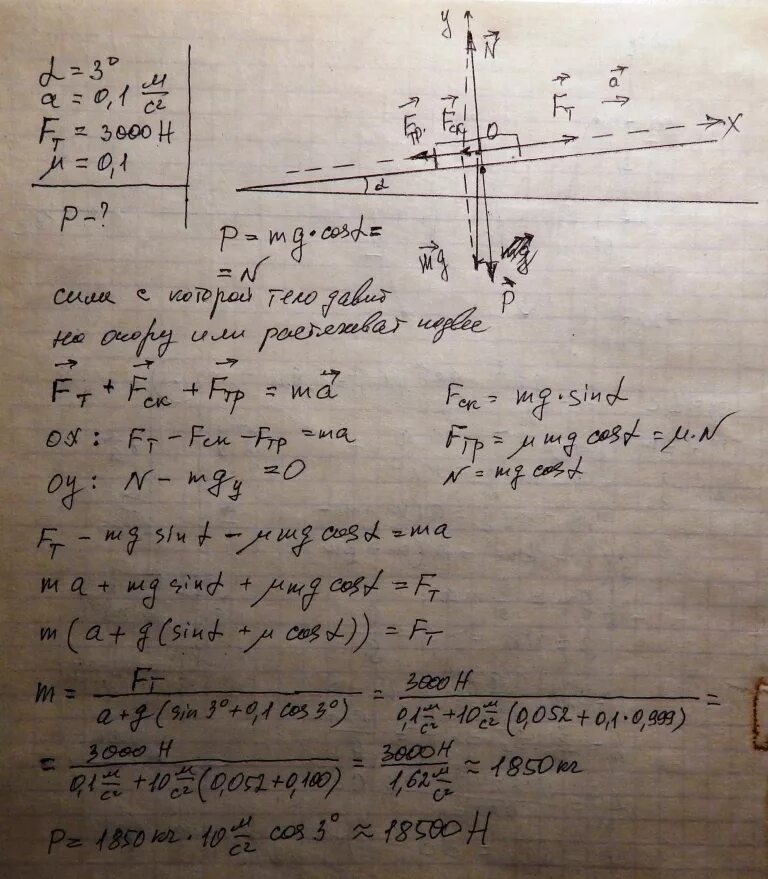 α = 3°
a = 0,1 м/с²
Fт = 3000 Н
μ = 0,1
P - ?
y
N
Fтр. Fск 0 Fт a
X
α
mg mg
P
P = mg·cosα =
= N
сила с которой тело давит
на опору или растягиват подвес
Fт + Fск + Fтр = ma
Fск = mg·sinα
ox: Fт - Fск - Fтр = ma
Fтр = μmg cosα = μ·N
oy: N - mgy = 0
N = mg cosα
Fт - mg sinα - μmg cosα = ma
ma + mg sinα + μmg cosα = Fт
m(a + g(sinα + μ cosα)) = Fт
m = Fт / (a + g(sin 3° + 0,1 cos 3°)) = 3000 Н / (0,1 м/с² + 10 м/с² (0,052 + 0,1·0,999)) =
= 3000 Н / (0,1 м/с² + 10 м/с² (0,052 + 0,100)) = 3000 Н / 1,62 м/с² ≈ 1850 кг
P = 1850 кг · 10 м/с² cos 3° ≈ 18500 Н